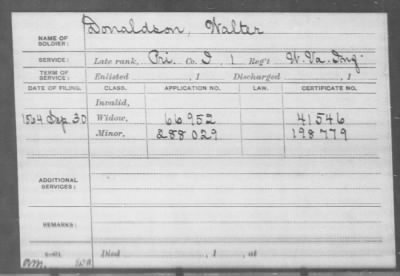 NAME OF SOLDIER: Donaldson, Walter
SERVICE: Late rank, Pri. Co. I, 1 Reg't W. Va. Inf.
TERM OF SERVICE: Enlisted , 1 Discharged , 1
DATE OF FILING. CLASS. APPLICATION NO. LAW. CERTIFICATE NO.
Invalid,
1864 Sep. 30 Widow, 66952 41546
Minor, 288029 198779
ADDITIONAL SERVICES:
REMARKS:
Died , 1 , at